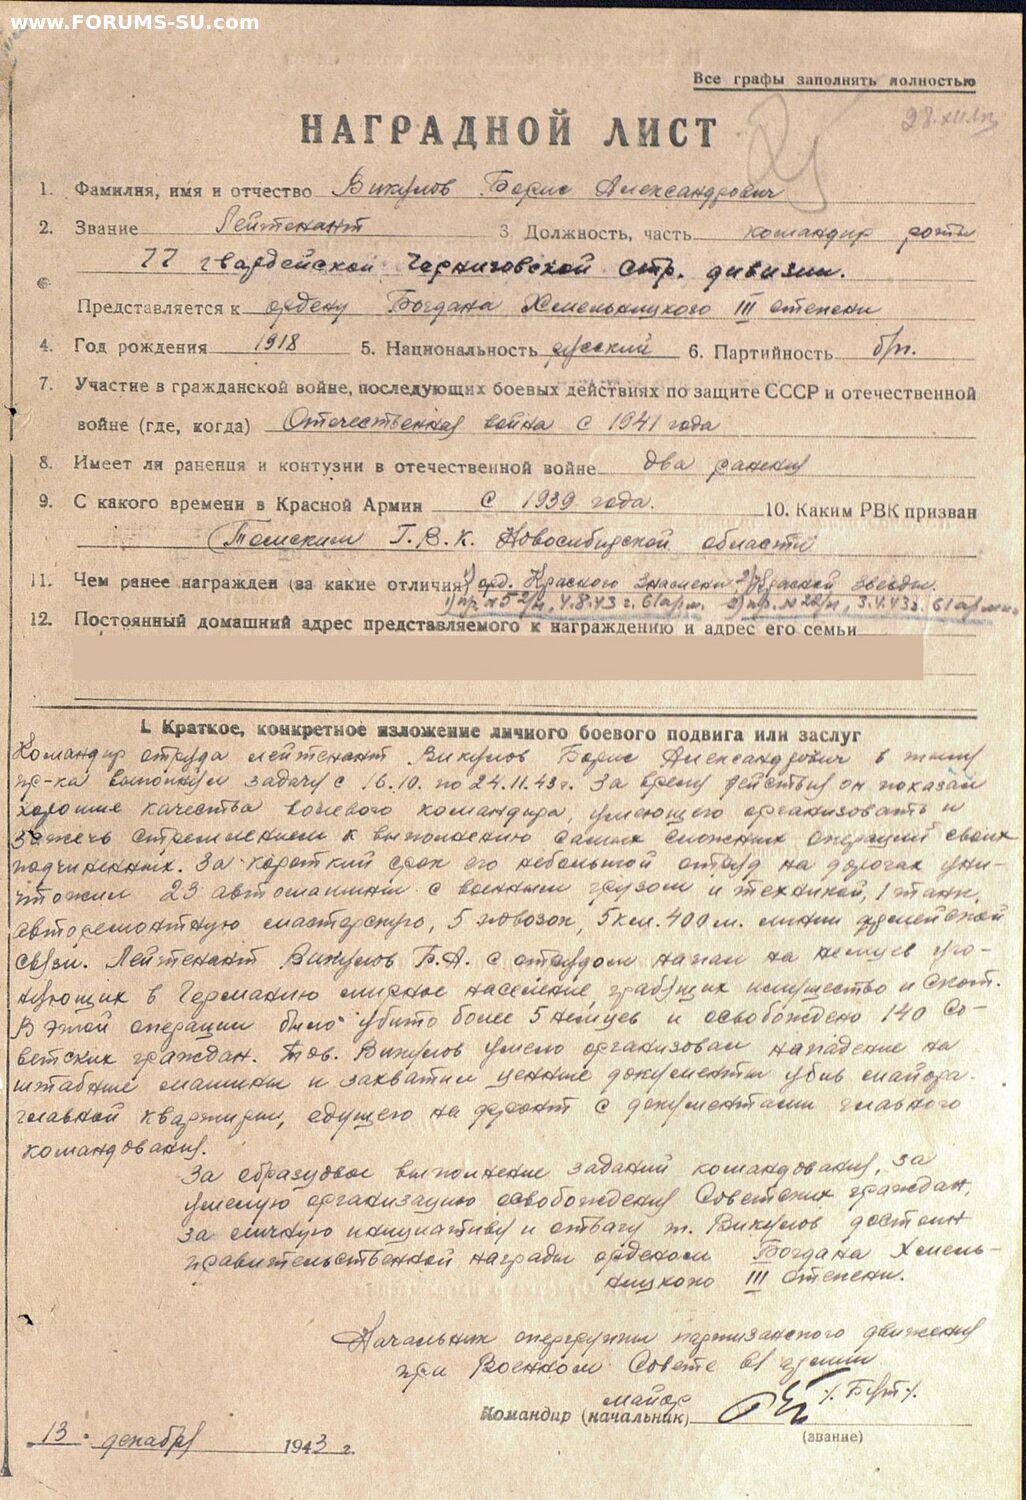 www.FORUMS-SU.com
Все графы заполнять полностью
28.XII.
НАГРАДНОЙ ЛИСТ
1. Фамилия, имя и отчество Викулов Борис Александрович
2. Звание Лейтенант 3. Должность, часть командир роты
77 гвардейской Черниговской стр. дивизии.
Представляется к ордену Богдана Хмельницкого III степени
4. Год рождения 1918 5. Национальность русский 6. Партийность б/п.
7. Участие в гражданской войне, последующих боевых действиях по защите СССР и отечественной
войне (где, когда) Отечественная война с 1941 года
8. Имеет ли ранения и контузии в отечественной войне два ранения
9. С какого времени в Красной Армии с 1939 года. 10. Каким РВК призван
Томским Г.В.К. Новосибирской области
11. Чем ранее награжден (за какие отличия) 1) орд. Красного Знамени 2) Красной Звезды.
1) пр. №52/н, 4.8.43 г. 61 арм. 2) пр. №22/н, 3.4.43 г. 61 армии
12. Постоянный домашний адрес представляемого к награждению и адрес его семьи
I. Краткое, конкретное изложение личного боевого подвига или заслуг
Командир отряда лейтенант Викулов Борис Александрович в тылу
пр-ка выполнял задачу с 16.10. по 24.11.43 г. За время действия он показал
хорошие качества волевого командира, умеющего организовать и
зажечь стремлением к выполнению самых сложных операций своих
подчиненных. За короткий срок его небольшой отряд на дорогах уни-
чтожил 23 автомашины с военным грузом и техникой, 1 танк,
авторемонтную мастерскую, 5 повозок, 5 км. 400 м. линии армейской
связи. Лейтенант Викулов Б.А. с отрядом напал на немцев уго-
няющих в Германию мирное население, грабящих имущество и скот.
В этой операции было убито более 5 немцев и освобождено 140 Со-
ветских граждан. Тов. Викулов умело организовал нападение на
штабные машины и захватил ценные документы убив майора
главной квартиры, едущего на фронт с документами главного
командования.
За образцовое выполнение заданий командования, за
умелую организацию освобождения Советских граждан,
за личную инициативу и отвагу т. Викулов достоин
правительственной награды орденом Богдана Хмель-
ницкого III степени.
Начальник опергруппы партизанского движения
при Военном Совете 61 армии
майор /Бут/.
Командир (начальник)
(звание)
13 декабря 1943 г.